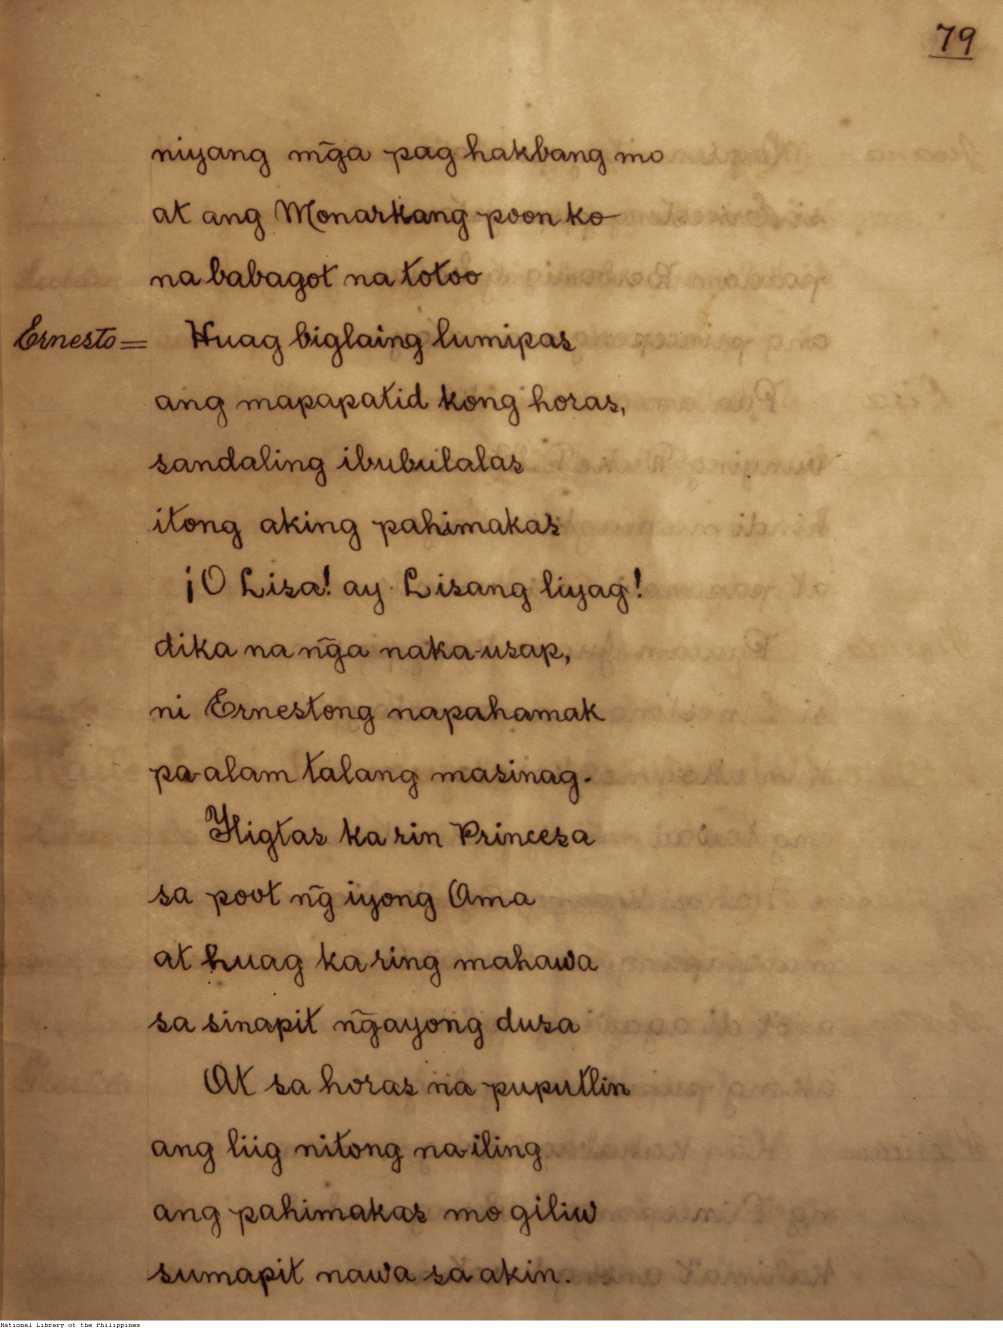 79
niyang mg̃a pag hakbang mo
at ang Monarkang poon ko
na babagot na totoo
Ernesto= Huag biglaing lumipas
ang mapapatid kong horas,
sandaling ibubulalas
itong aking pahimakas
¡O Lisa! ay Lisang liyag!
dika na ng̃a naka-usap,
ni Ernestong napahamak
pa-alam talang masinag.
Yligtas ka rin Princesa
sa poot ng̃ iyong Ama
at huag ka ring mahawa
sa sinapit ng̃ayong dusa
At sa horas na puputlin
ang liig nitong na iling
ang pahimakas mo giliw
sumapit nawa sa akin.
National Library of the Philippines